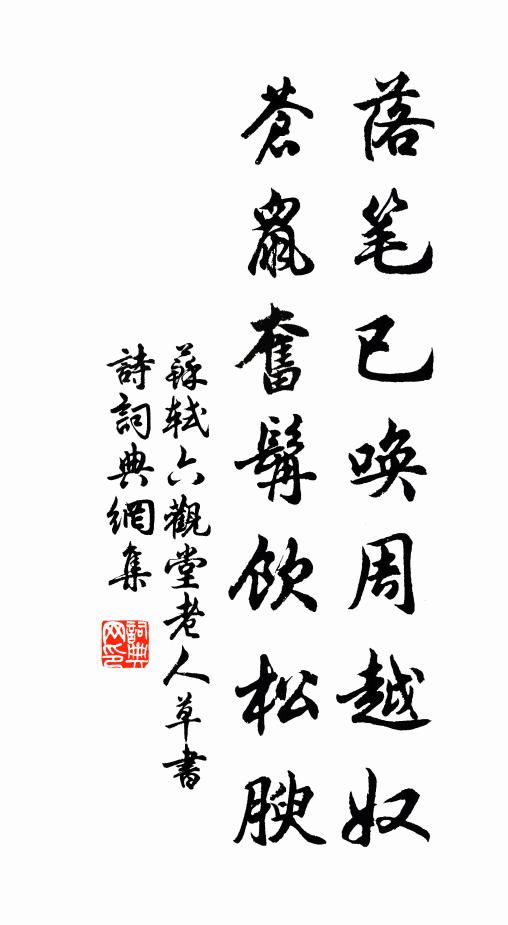 落笔已唤周越奴
蒼鼠奮髯飲松腴
蘇軾六觀堂老人草書
詩詞典網集
詞典网印